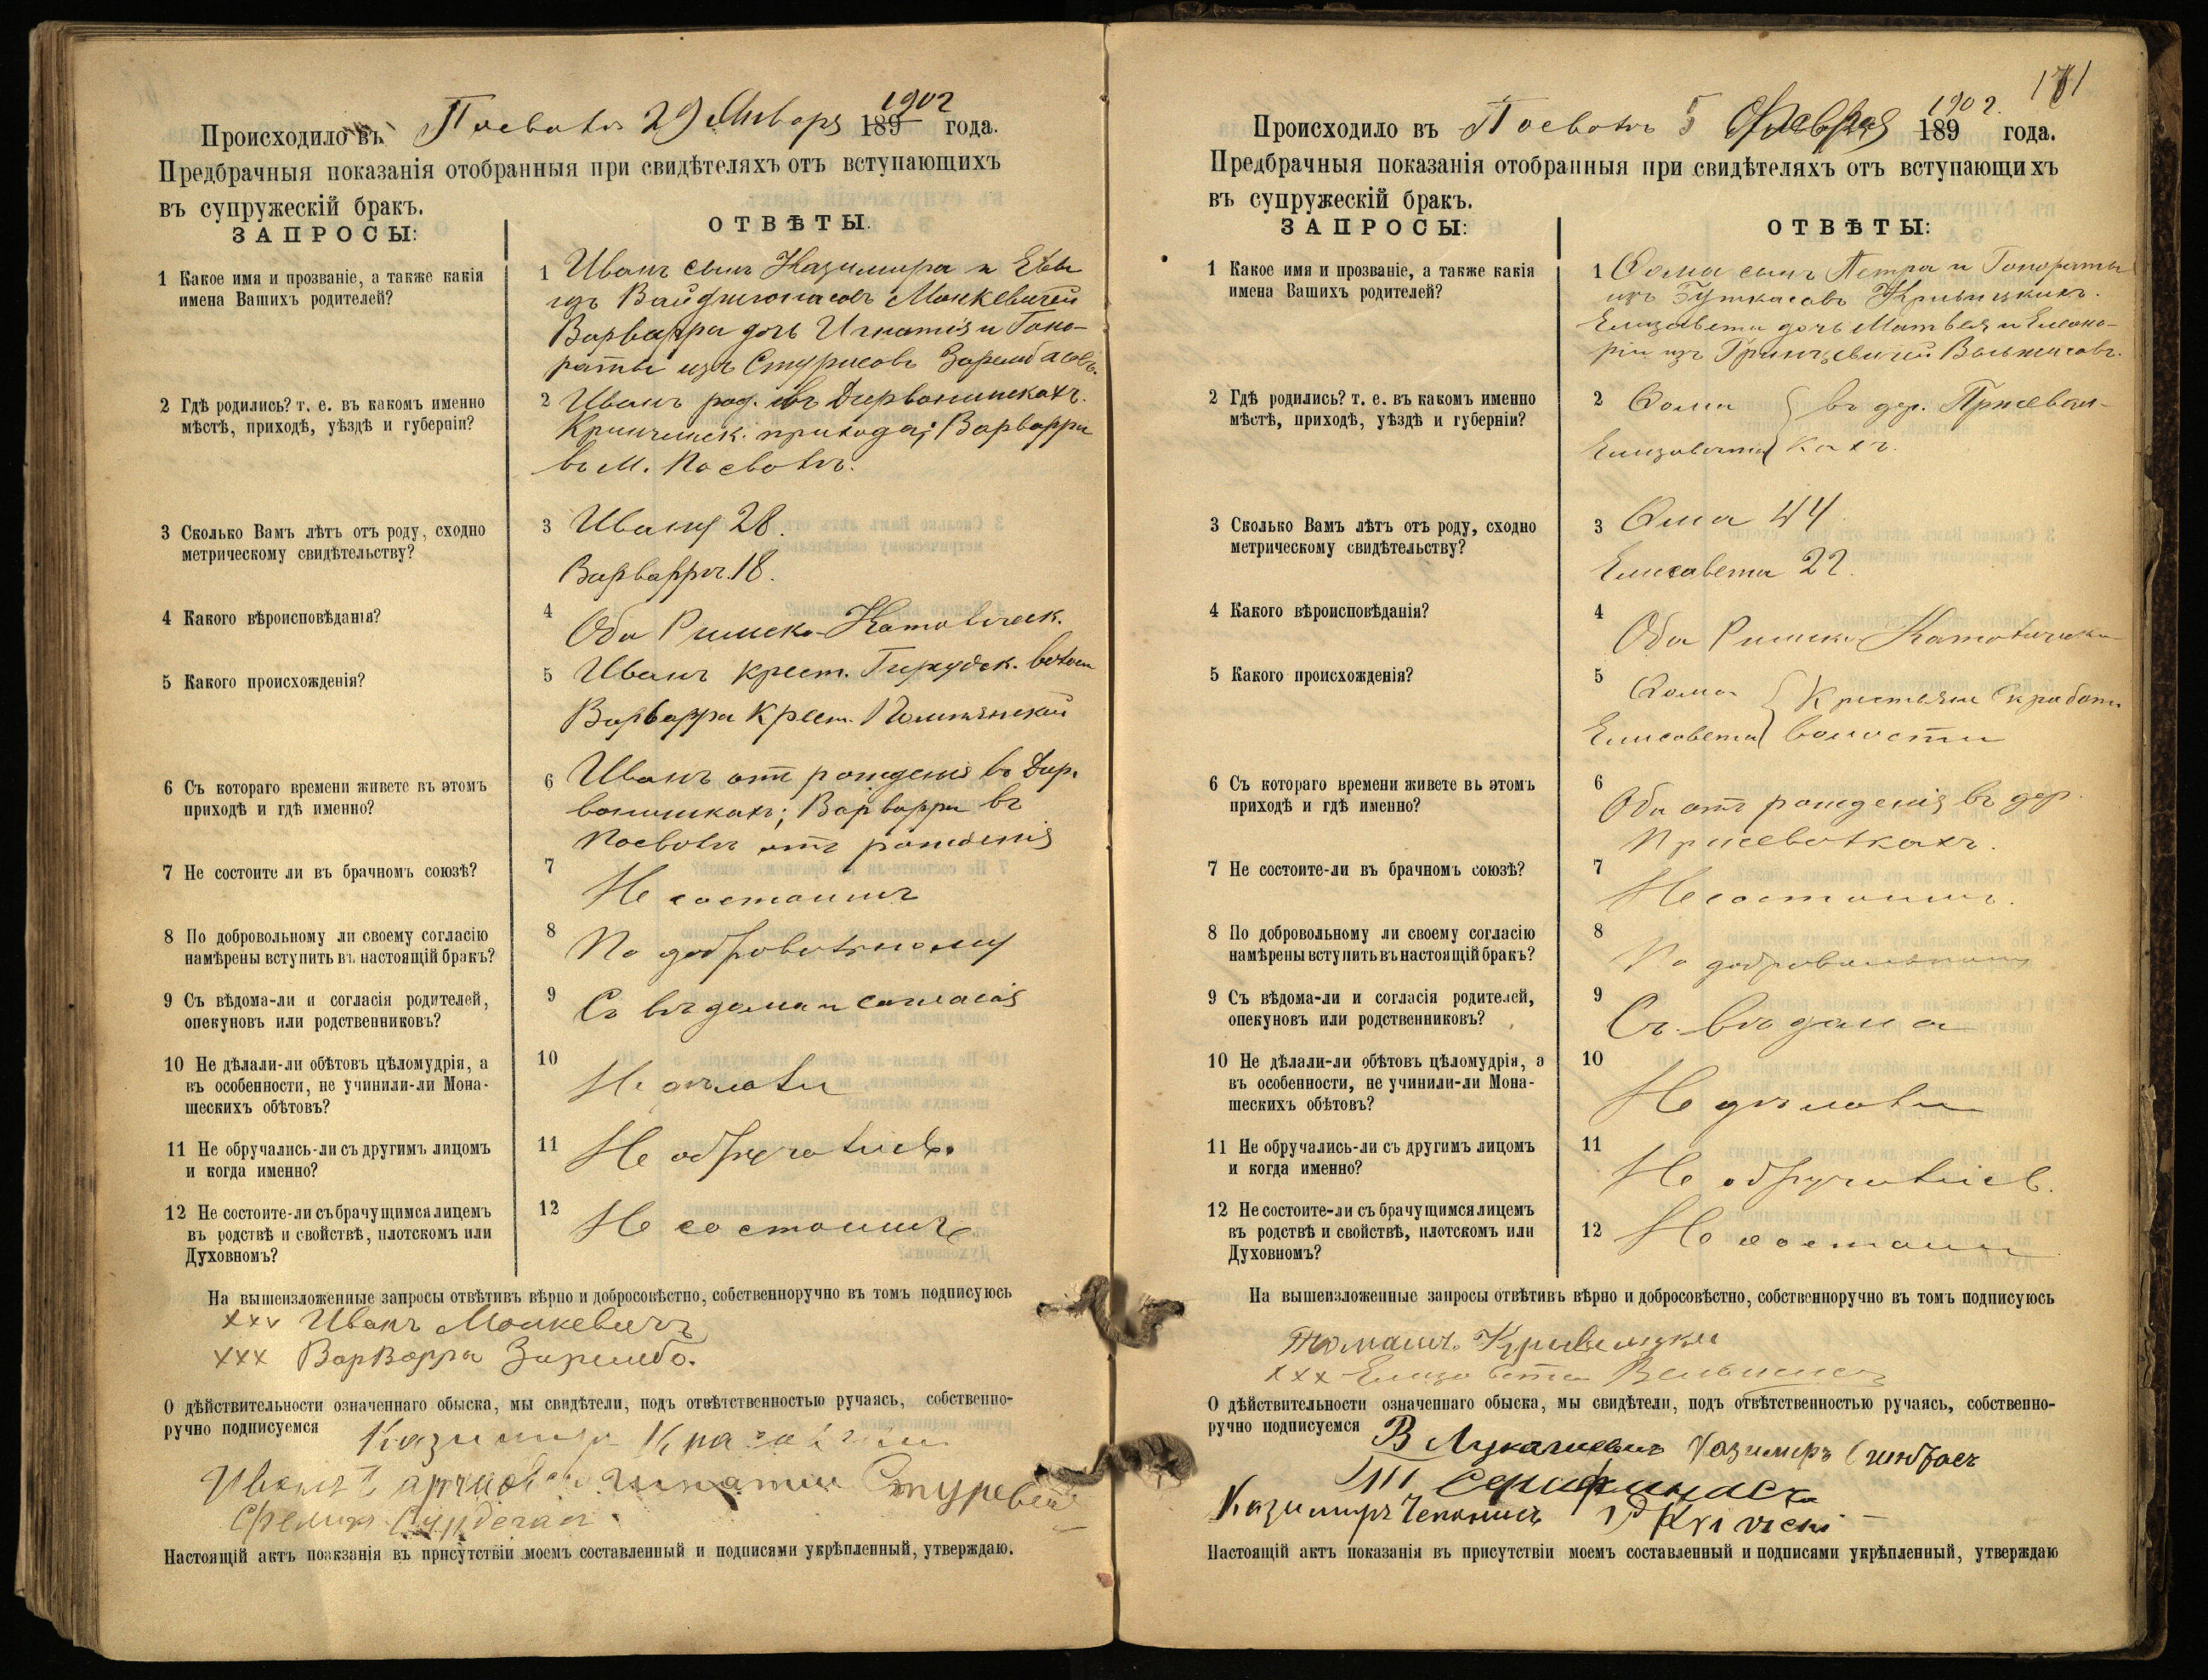 Происходило въ Посволѣ 29 Января 189 1902 года.
Предбрачныя показанія отобранныя при свидѣтеляхъ отъ вступающихъ
въ супружескій бракъ.
ЗАПРОСЫ:
ОТВѢТЫ.
1 Какое имя и прозваніе, а также какія
имена Вашихъ родителей?
1 Иванъ сынъ Казимира и Евы
изъ Монкевичей
Варварра дочь Игнатія и Гоно-
раты изъ Стурисовъ
2 Гдѣ родились? т. е. въ какомъ именно
мѣстѣ, приходѣ, уѣздѣ и губерніи?
2 Иванъ род. въ Дирванишкахъ
прихода; Варварра
въ м. Посволѣ.
3 Сколько Вамъ лѣтъ отъ роду, сходно
метрическому свидѣтельству?
3 Ивану 28.
Варварра 18.
4 Какого вѣроисповѣданія?
4 Оба Римско-Католическ.
5 Какого происхожденія?
5 Иванъ крест. волости
Варварра крест.
6 Съ котораго времени живете въ этомъ
приходѣ и гдѣ именно?
6 Иванъ отъ рожденія въ Дир-
ванишкахъ; Варварра въ
Посволѣ отъ рожденія
7 Не состоите ли въ брачномъ союзѣ?
7 Не состоимъ
8 По добровольному ли своему согласію
намѣрены вступить въ настоящій бракъ?
8 По добровольному
9 Съ вѣдома-ли и согласія родителей,
опекуновъ или родственниковъ?
9 Съ вѣдома и согласія
10 Не дѣлали-ли обѣтовъ цѣломудрія, а
въ особенности, не учинили-ли Мона-
шескихъ обѣтовъ?
10 Не дѣлали
11 Не обручались-ли съ другимъ лицомъ
и когда именно?
11 Не обручались.
12 Не состоите-ли съ брачущимся лицемъ
въ родствѣ и свойствѣ, плотскомъ или
Духовномъ?
12 Не состоимъ
На вышеизложенные запросы отвѣтивъ вѣрно и добросовѣстно, собственноручно въ томъ подписуюсь
xxx Иванъ Монкевичъ
xxx Варварра Зарембо.
О дѣйствительности означеннаго обыска, мы свидѣтели, подъ отвѣтственностью ручаясь, собственно-
ручно подписуемся Казимиръ
Иванъ
Настоящій актъ поакзанія въ присутствіи моемъ составленный и подписями укрѣпленный, утверждаю.
171
Происходило въ Посволѣ 5 Февраля 189 1902 года.
Предбрачныя показанія отобранныя при свидѣтеляхъ отъ вступающихъ
въ супружескій бракъ.
ЗАПРОСЫ:
ОТВѢТЫ:
1 Какое имя и прозваніе, а также какія
имена Вашихъ родителей?
1 Ѳома сынъ Петра и Гонораты
изъ Кривицкихъ.
Елизавета дочь Матвея и Елеоно-
ріи изъ
2 Гдѣ родились? т. е. въ какомъ именно
мѣстѣ, приходѣ, уѣздѣ и губерніи?
2 Ѳома въ дер. Присвал-
Елизавета кахъ.
3 Сколько Вамъ лѣтъ отъ роду, сходно
метрическому свидѣтельству?
3 Ѳома 44
Елисавета 22.
4 Какого вѣроисповѣданія?
4 Оба Римско Католическ
5 Какого происхожденія?
5 Ѳома Крестьяне
Елисавета волости
6 Съ котораго времени живете въ этомъ
приходѣ и гдѣ именно?
6 Оба отъ рожденія въ дер.
Присвалкахъ.
7 Не состоите-ли въ брачномъ союзѣ?
7 Не состоимъ.
8 По добровольному ли своему согласію
намѣрены вступить въ настоящій бракъ?
8 По добровольному
9 Съ вѣдома-ли и согласія родителей,
опекуновъ или родственниковъ?
9 Съ вѣдома
10 Не дѣлали-ли обѣтовъ цѣломудрія, а
въ особенности, не учинили-ли Мона-
шескихъ обѣтовъ?
10 Не дѣлали
11 Не обручались-ли съ другимъ лицомъ
и когда именно?
11 Не обручались.
12 Не состоите-ли съ брачущимся лицемъ
въ родствѣ и свойствѣ, плотскомъ или
Духовномъ?
12 Не состоимъ
На вышеизложенные запросы отвѣтивъ вѣрно и добросовѣстно, собственноручно въ томъ подписуюсь
xxx Елизавета
О дѣйствительности означеннаго обыска, мы свидѣтели, подъ отвѣтственностью ручаясь, собственно-
ручно подписуемся В Казимиръ
Казимиръ
Настоящій актъ показанія въ присутствіи моемъ составленный и подписями укрѣпленный, утверждаю